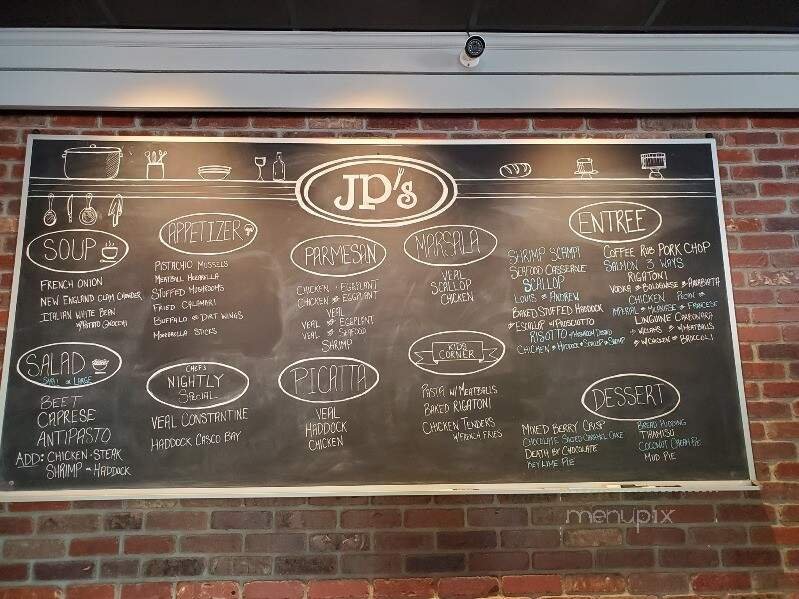 JP's
SOUP
FRENCH ONION
NEW ENGLAND CLAM CHOWDER
ITALIAN WHITE BEAN
w/ POTATO GNOCCHI
SALAD
SMALL OR LARGE
BEET
CAPRESE
ANTIPASTO
ADD: CHICKEN - STEAK
SHRIMP - HADDOCK
APPETIZER
PISTACHIO MUSSELS
MEATBALL MOZARELLA
STUFFED MUSHROOMS
FRIED CALAMARI
BUFFALO or DIRT WINGS
MOZARELLA STICKS
CHEF'S
NIGHTLY
SPECIAL
VEAL CONSTANTINE
HADDOCK CASCO BAY
PARMESAN
CHICKEN - EGGPLANT
CHICKEN & EGGPLANT
VEAL
VEAL & EGGPLANT
VEAL & SEAFOOD
SHRIMP
PICATTA
VEAL
HADDOCK
CHICKEN
MARSALA
VEAL
SCALLOP
CHICKEN
KIDS
CORNER
PASTA w/ MEATBALLS
BAKED RIGATONI
CHICKEN TENDERS
w/ FRENCH FRIES
ENTREE
SHRIMP SCAMPI
SEAFOOD CASSEROLE
SCALLOP
LOUIS or ANDREW
BAKED STUFFED HADDOCK
SCALLOP w/ PROSCIUTTO
RISOTTO
CHICKEN HADDOCK SCALLOP or SHRIMP
COFFEE RUB PORK CHOP
SALMON 3 WAYS
RIGATONI
VODKA BOLOGNESE ARRABIATA
CHICKEN
IMPERIAL MILANESE FRANCESE
LINGUINE CARBONARA
w/ CLAMS w/ MEATBALLS
w/ CHICKEN & BROCCOLI
DESSERT
MIXED BERRY CRISP
CHOCOLATE SALTED CARAMEL CAKE
DEATH BY CHOCOLATE
KEY LIME PIE
BREAD PUDDING
TIRAMISU
COCONUT CREAM PIE
MUD PIE
menupix